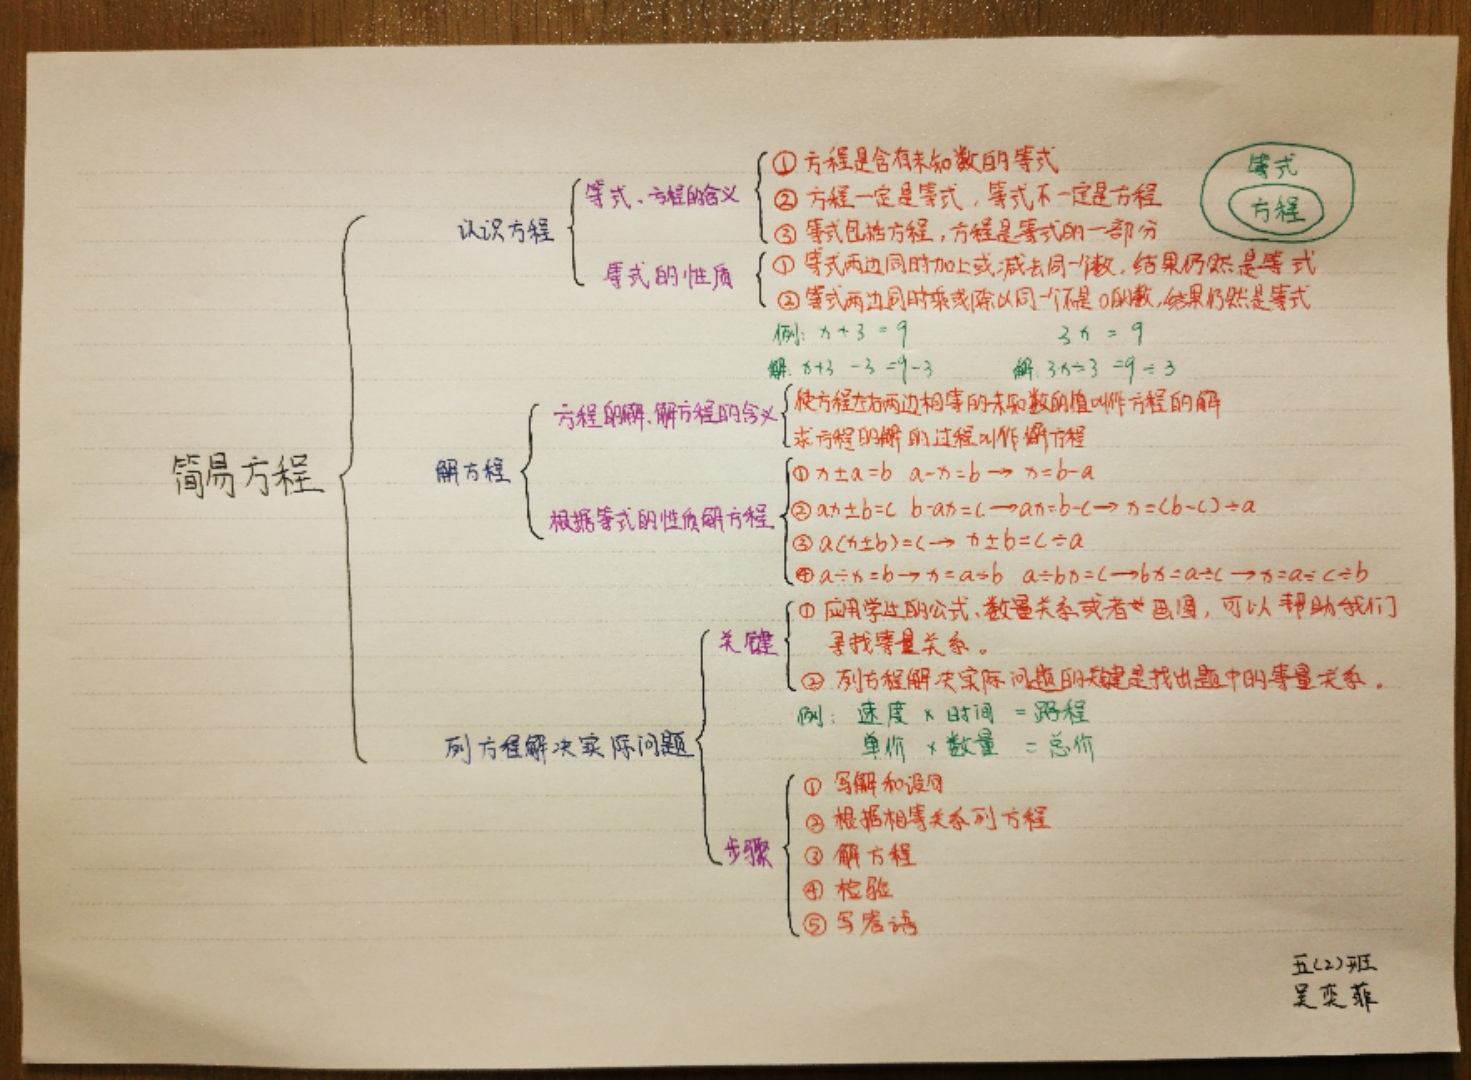 简易方程
认识方程
等式、方程的含义
① 方程是含有未知数的等式
② 方程一定是等式，等式不一定是方程
③ 等式包括方程，方程是等式的一部分
等式
方程
等式的性质
① 等式两边同时加上或减去同一个数，结果仍然是等式
② 等式两边同时乘或除以同一个不是0的数，结果仍然是等式
例：x+3=9 3x=9
解：x+3-3=9-3 解：3x÷3=9÷3
解方程
方程的解、解方程的含义
使方程左右两边相等的未知数的值叫作方程的解
求方程的解的过程叫作解方程
根据等式的性质解方程
① x±a=b a-x=b→x=b-a
② ax±b=c b-ax=c→ax=b-c→x=(b-c)÷a
③ a(x±b)=c→x±b=c÷a
④ a÷x=b→x=a÷b a÷bx=c→bx=a÷c→x=a÷c÷b
列方程解决实际问题
关键
① 应用学过的公式、数量关系或者画图，可以帮助我们
寻找等量关系。
② 列方程解决实际问题的关键是找出题中的等量关系。
例：速度×时间=路程
单价×数量=总价
步骤
① 写解和设句
② 根据相等关系列方程
③ 解方程
④ 检验
⑤ 写答语
五(2)班
吴奕菲